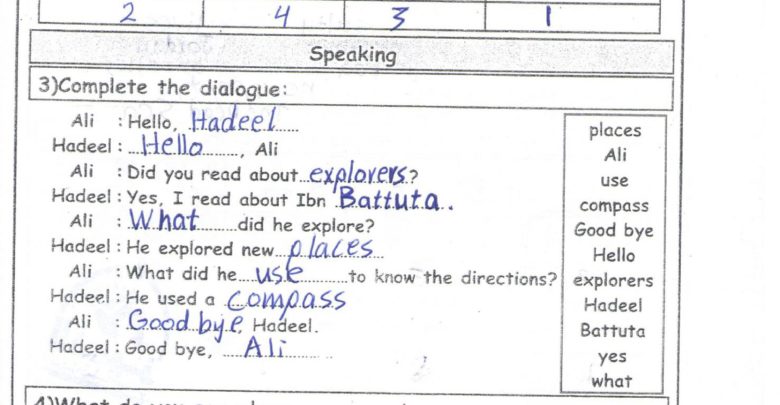 2 4 3 1
Speaking
3)Complete the dialogue:
Ali : Hello, Hadeel
Hadeel : Hello, Ali
Ali : Did you read about explorers?
Hadeel : Yes, I read about Ibn Battuta.
Ali : What did he explore?
Hadeel : He explored new places
Ali : What did he use to know the directions?
Hadeel : He used a compass
Ali : Good bye, Hadeel.
Hadeel : Good bye, Ali
places
Ali
use
compass
Good bye
Hello
explorers
Hadeel
Battuta
yes
what